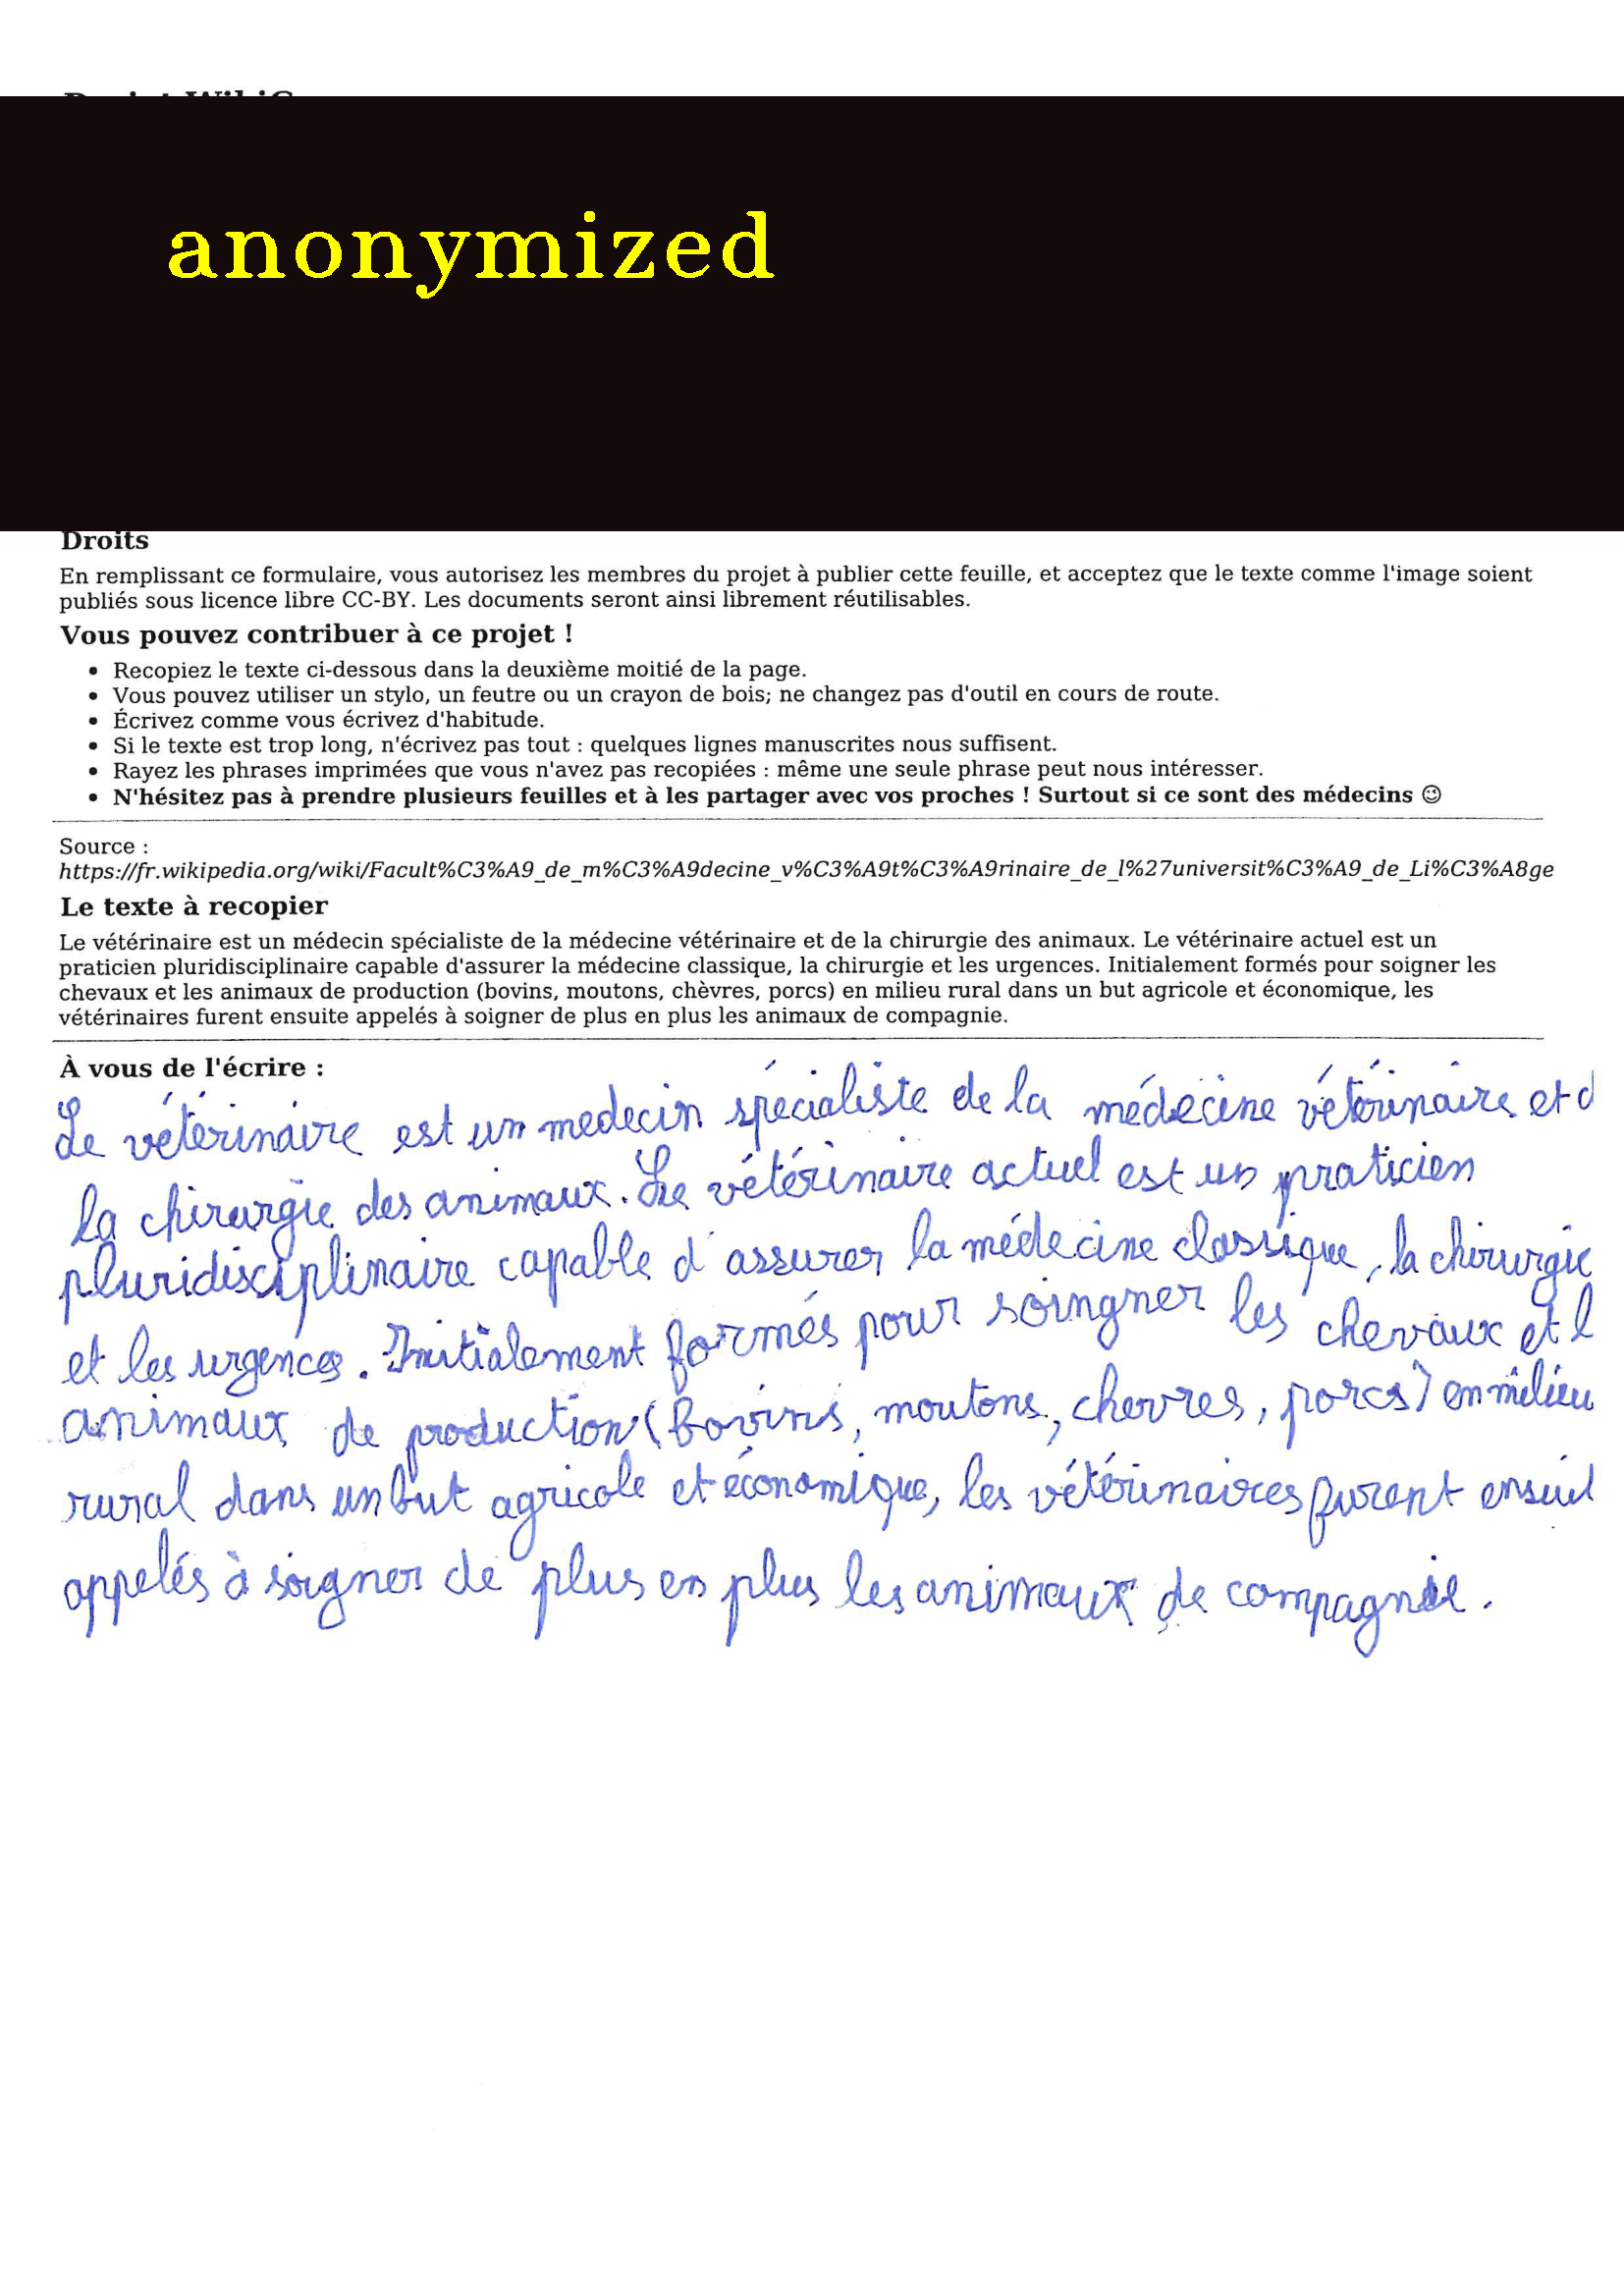 anonymized
Droits
En remplissant ce formulaire, vous autorisez les membres du projet à publier cette feuille, et acceptez que le texte comme l'image soient
publiés sous licence libre CC-BY. Les documents seront ainsi librement réutilisables.
Vous pouvez contribuer à ce projet !
• Recopiez le texte ci-dessous dans la deuxième moitié de la page.
• Vous pouvez utiliser un stylo, un feutre ou un crayon de bois; ne changez pas d'outil en cours de route.
• Écrivez comme vous écrivez d'habitude.
• Si le texte est trop long, n'écrivez pas tout : quelques lignes manuscrites nous suffisent.
• Rayez les phrases imprimées que vous n'avez pas recopiées : même une seule phrase peut nous intéresser.
• N'hésitez pas à prendre plusieurs feuilles et à les partager avec vos proches ! Surtout si ce sont des médecins ☺
Source :
https://fr.wikipedia.org/wiki/Facult%C3%A9_de_m%C3%A9decine_v%C3%A9t%C3%A9rinaire_de_l%27universit%C3%A9_de_Li%C3%A8ge
Le texte à recopier
Le vétérinaire est un médecin spécialiste de la médecine vétérinaire et de la chirurgie des animaux. Le vétérinaire actuel est un
praticien pluridisciplinaire capable d'assurer la médecine classique, la chirurgie et les urgences. Initialement formés pour soigner les
chevaux et les animaux de production (bovins, moutons, chèvres, porcs) en milieu rural dans un but agricole et économique, les
vétérinaires furent ensuite appelés à soigner de plus en plus les animaux de compagnie.
À vous de l'écrire :
Le vétérinaire est un medecin spécialiste de la médecine vétérinaire et d
la chirurgie des animaux. Le vétérinaire actuel est un praticien
pluridisciplinaire capable d'assurer la médecine classique, la chirurgie
et les urgences. Initialement formés pour soingner les chevaux et l
animaux de production (bovins, moutons, chevres, porcs) en milieu
rural dans un but agricole et économique, les vétérinaires furent ensuit
appelés à soigner de plus en plus les animaux de compagnie.